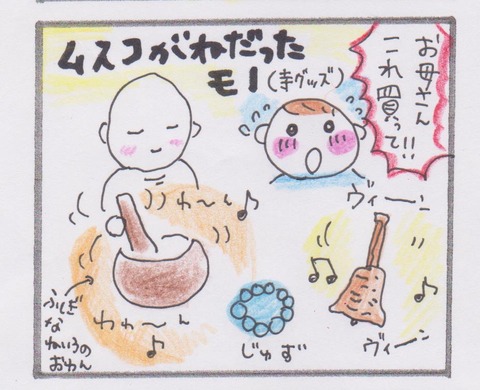 ムスコがねだった
モノ(寺グッズ)
お母さん
これ買って!!
わ〜ん
わわ〜ん
ふしぎ
な
ねいろの
おわん
じゅず
ヴィーン
ヴィーン